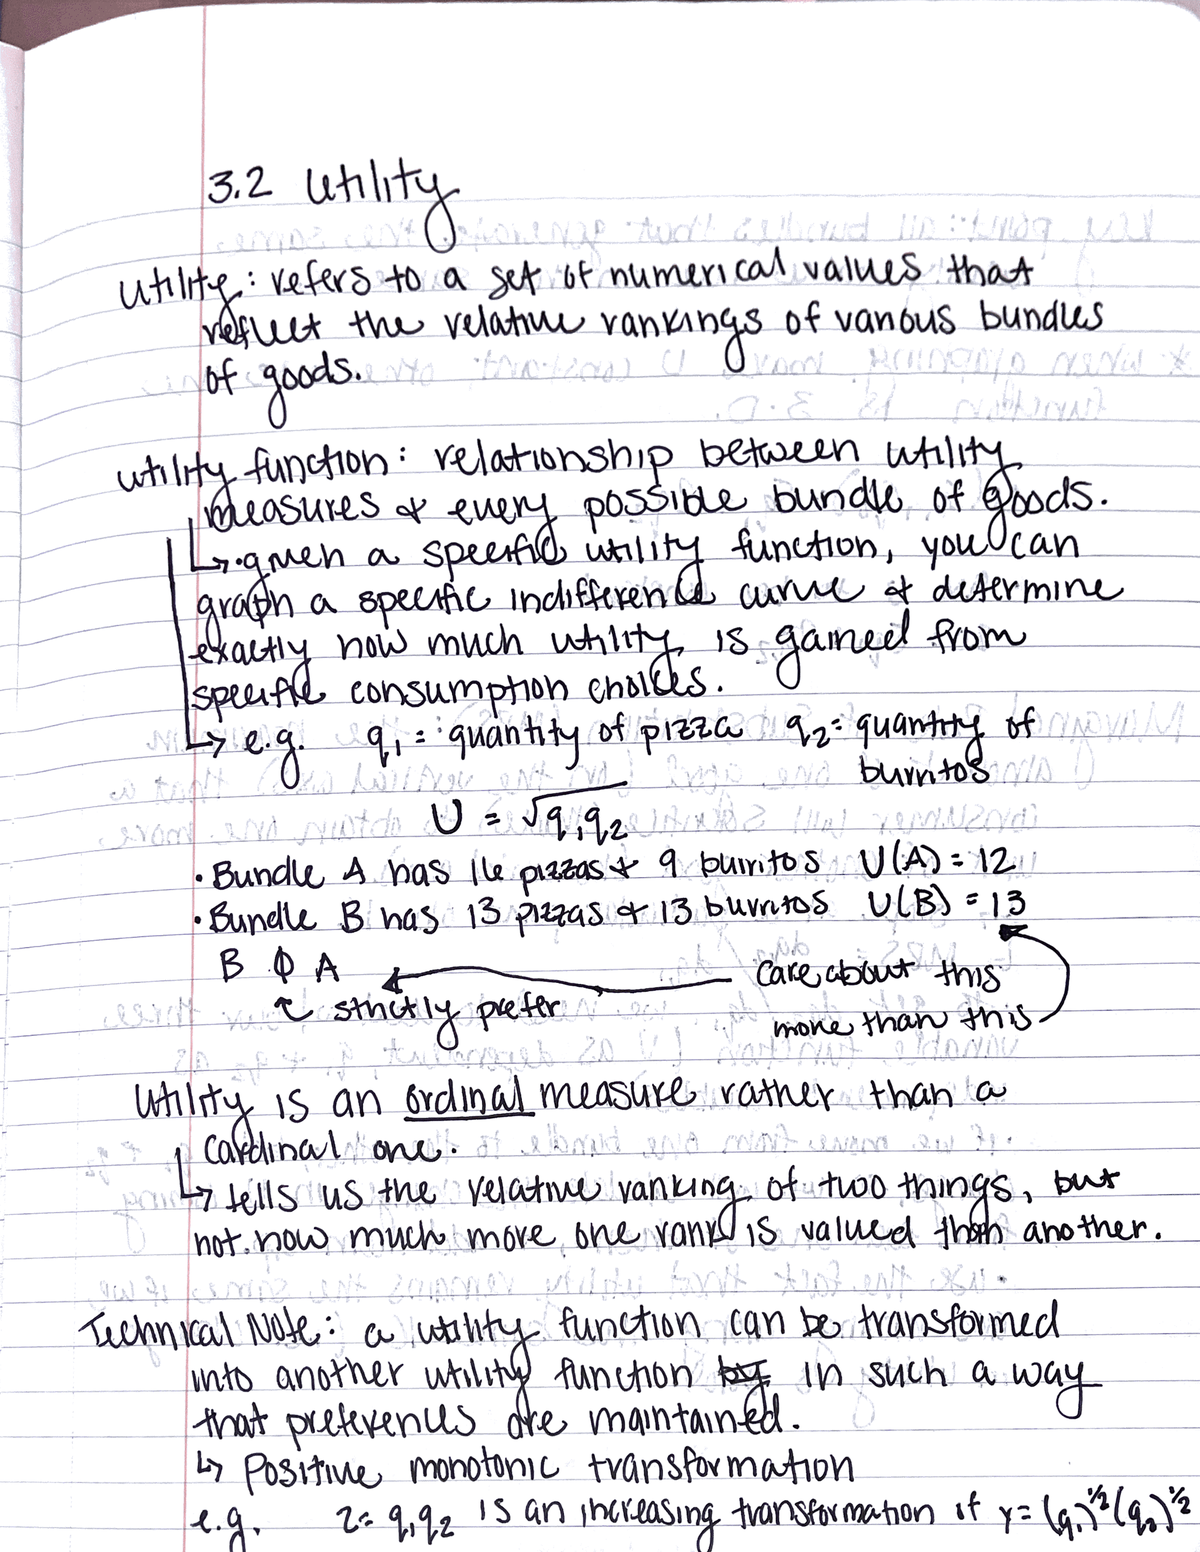 3.2 Utility
Utility: refers to a set of numerical values that
reflect the relative rankings of various bundles
of goods.
utility function: relationship between utility
measures & every possible bundle of goods.
↳ • given a specific utility function, you can
graph a specific indifference curve & determine
exactly how much utility is gained from
specific consumption choices.
↳ e.g. q₁ = quantity of pizza q₂ = quantity of
burritos
U = √q₁q₂
• Bundle A has 16 pizzas & 9 burritos U(A) = 12
• Bundle B has 13 pizzas & 13 burritos U(B) = 13
B A
care about this
↑ strictly prefer
more than this
Utility is an ordinal measure rather than a
cardinal one.
↳ tells us the relative ranking of two things, but
not how much more one rank is valued than another.
Technical Note: a utility function can be transformed
into another utility function by in such a way
that preferences are maintained.
↳ Positive monotonic transformation
e.g. z = q₁q₂ is an increasing transformation of y = (q₁)^½(q₂)^½